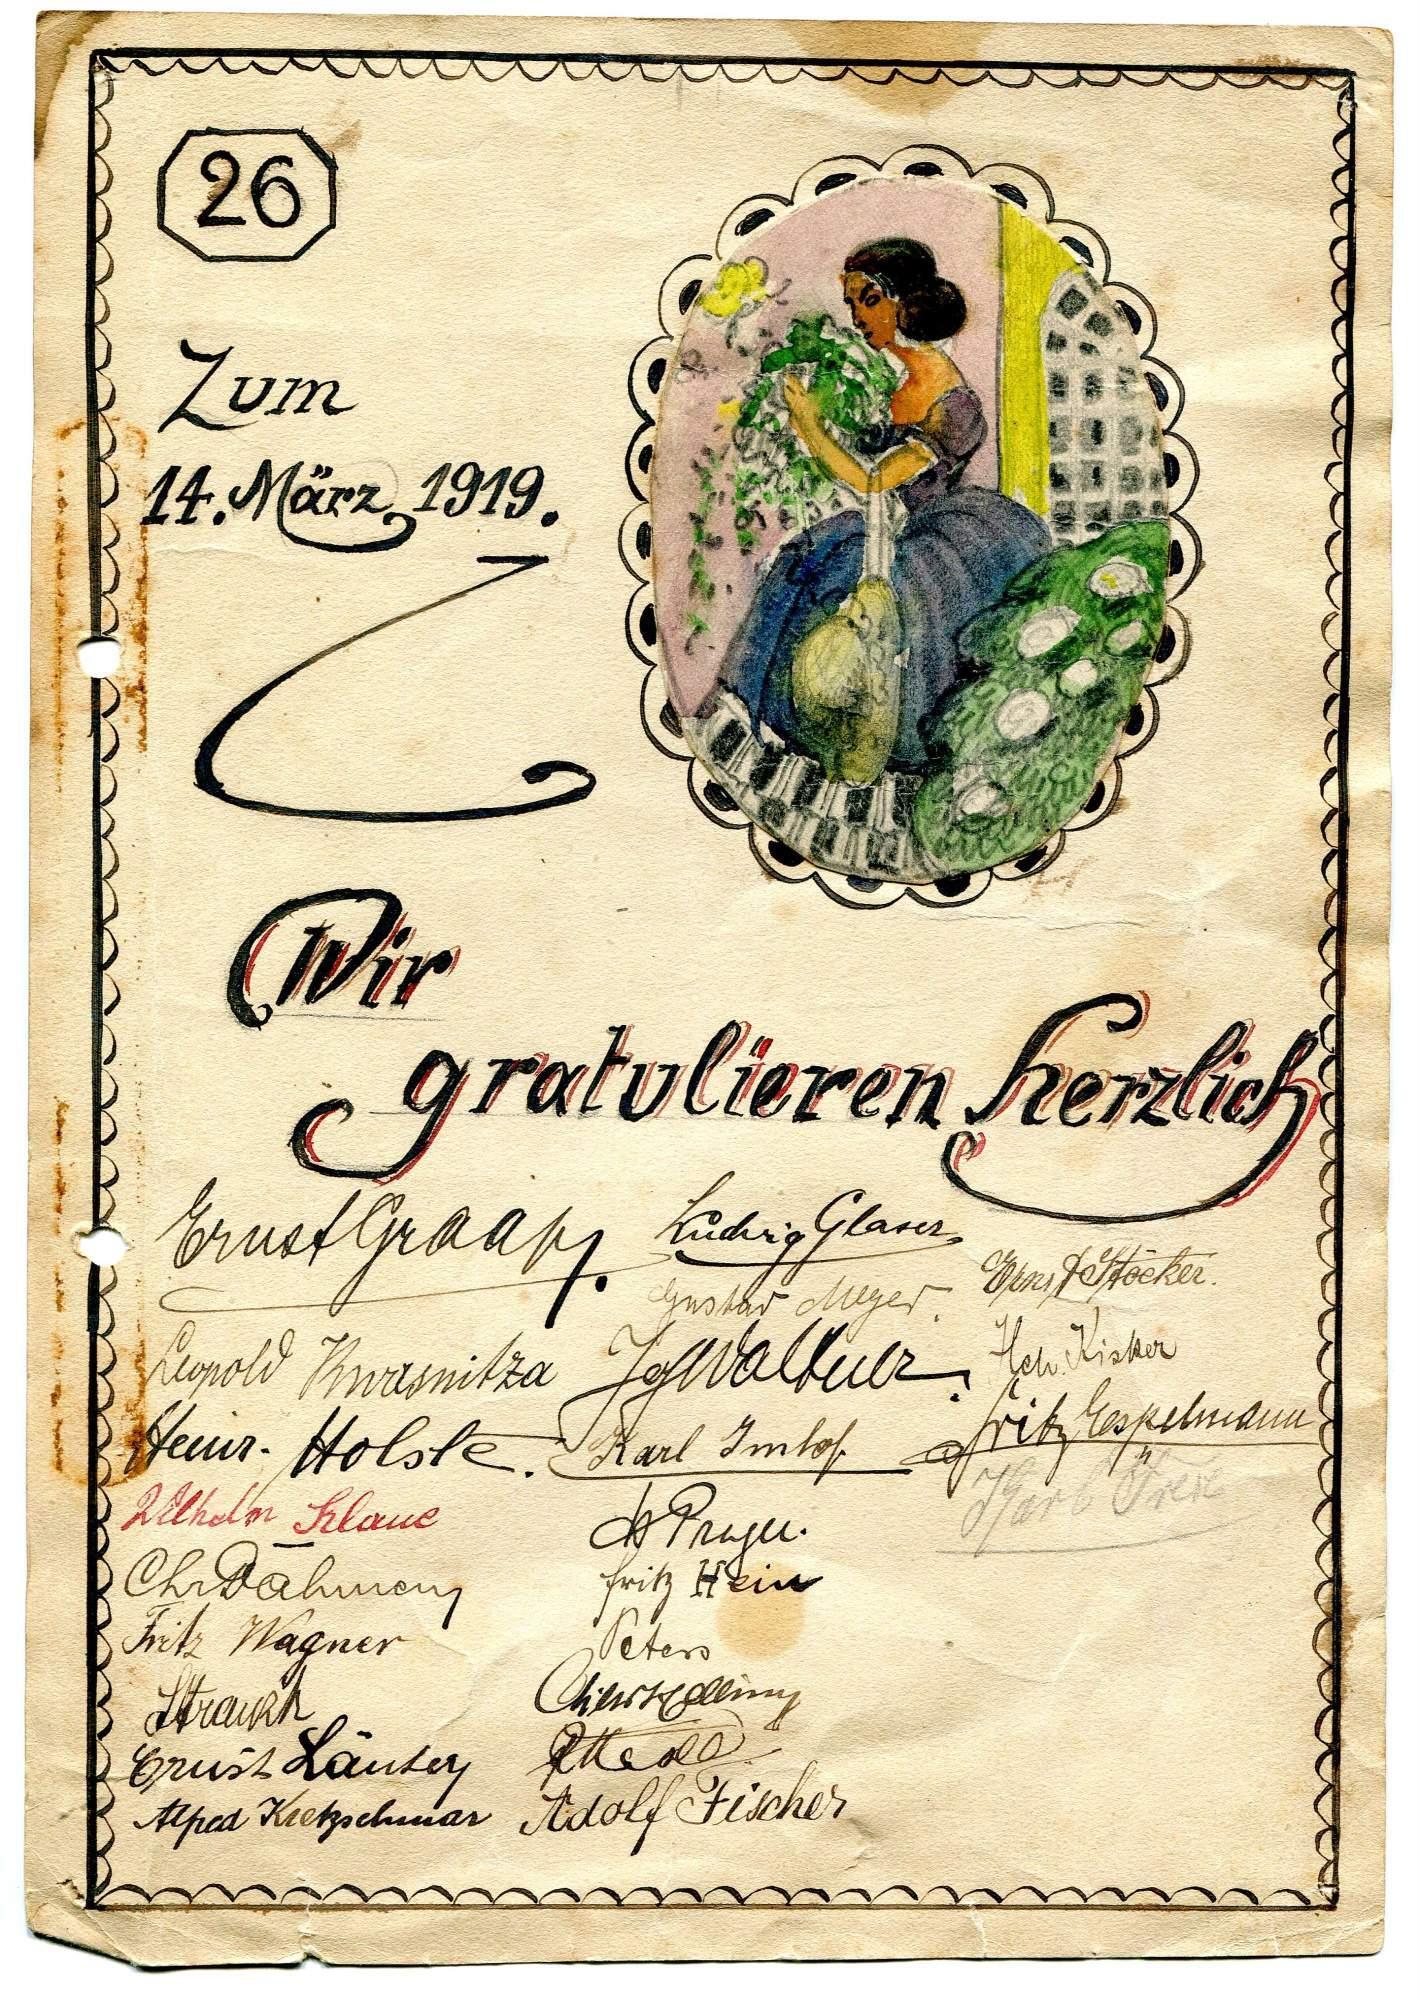 26
Zum
14. März 1919.
Wir
gratulieren herzlich
Ernst Graap.
Ludwig Glaser.
Ernst Stöcker.
Gustav Meyer.
Leopold Kwasnitza
Hch. Kisker
Heinr. Holste.
Karl Imhof
Fritz Espelmann
Wilhelm Klaue
Karl
Chr Dahmen
Fritz Hein
Fritz Wagner
Peters
Strauch
Ernst
Alfred Kretzschmar
Adolf Fischer